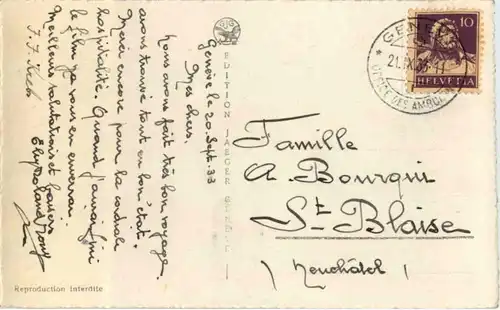 Genève le 20. Sept. 33
Mes chers,
Nous avons fait très bon voyage
avons trouvé tout en bon état.
Merci encore pour la cordiale
hospitalité. Quand j'aurai fini
le film je vous en enverrai.
Meilleures salutations et baisers
EDITION JAEGER GENÈVE
GENÈVE
21.IX.33
OFFICE DES AMBULANTS
10
HELVETIA
Famille
A. Bourqui
St-Blaise
(Neuchâtel)
Reproduction interdite